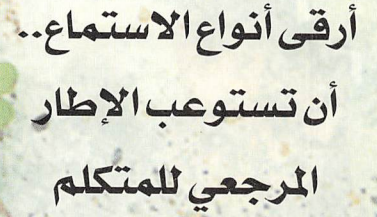 أرقى أنواع الاستماع..
أن تستوعب الإطار
المرجعي للمتكلم